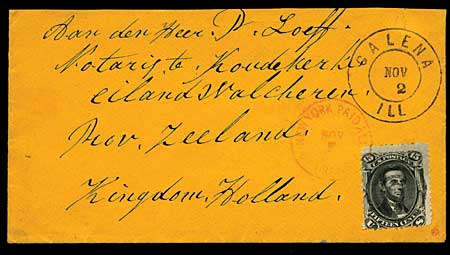 Aan den Heer P. Loeff
Notaris te Koudekerke
eiland Walcheren.
Prov. Zeeland.
Kingdom, Holland.
GALENA
NOV
2
ILL
NEW YORK PAID ALL
NOV
15 U.S. POSTAGE 15
FIFTEEN CENTS
U S